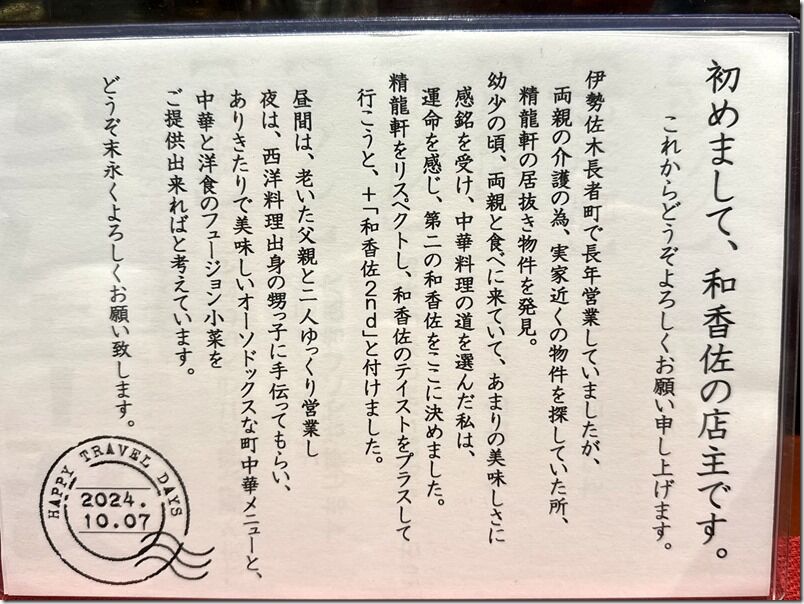 初めまして、和香佐の店主です。
これからどうぞよろしくお願い申し上げます。
伊勢佐木長者町で長年営業していましたが、
両親の介護の為、実家近くの物件を探していた所、
精龍軒の居抜き物件を発見。
幼少の頃、両親と食べに来ていて、あまりの美味しさに
感銘を受け、中華料理の道を選んだ私は、
運命を感じ、第二の和香佐をここに決めました。
精龍軒をリスペクトし、和香佐のテイストをプラスして
行こうと、+「和香佐2nd」と付けました。
昼間は、老いた父親と二人ゆっくり営業し
夜は、西洋料理出身の甥っ子に手伝ってもらい、
ありきたりで美味しいオーソドックスな町中華メニューと、
中華と洋食のフュージョン小菜を
ご提供出来ればと考えています。
どうぞ末永くよろしくお願い致します。
HAPPY TRAVEL DAYS
2024.
10.07